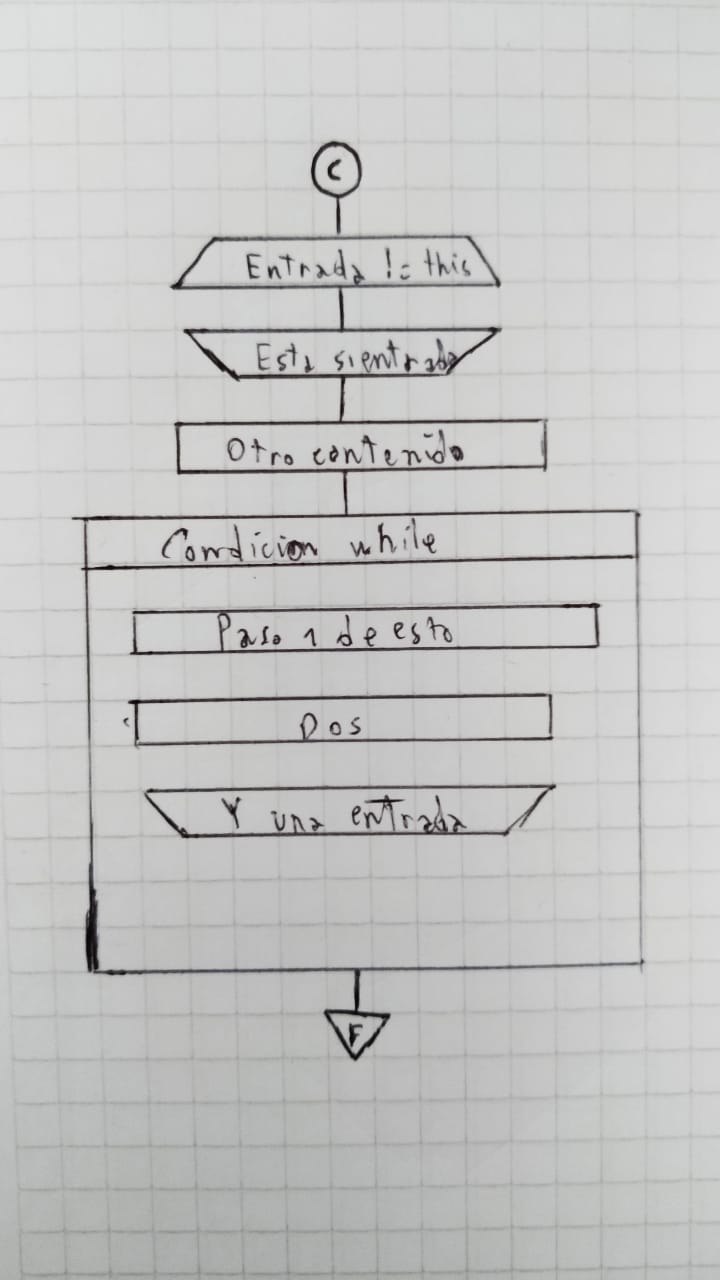 C
Entrada != this
Esta si entrada
Otro contenido
Condicion while
Paso 1 de esto
Dos
Y una entrada
F